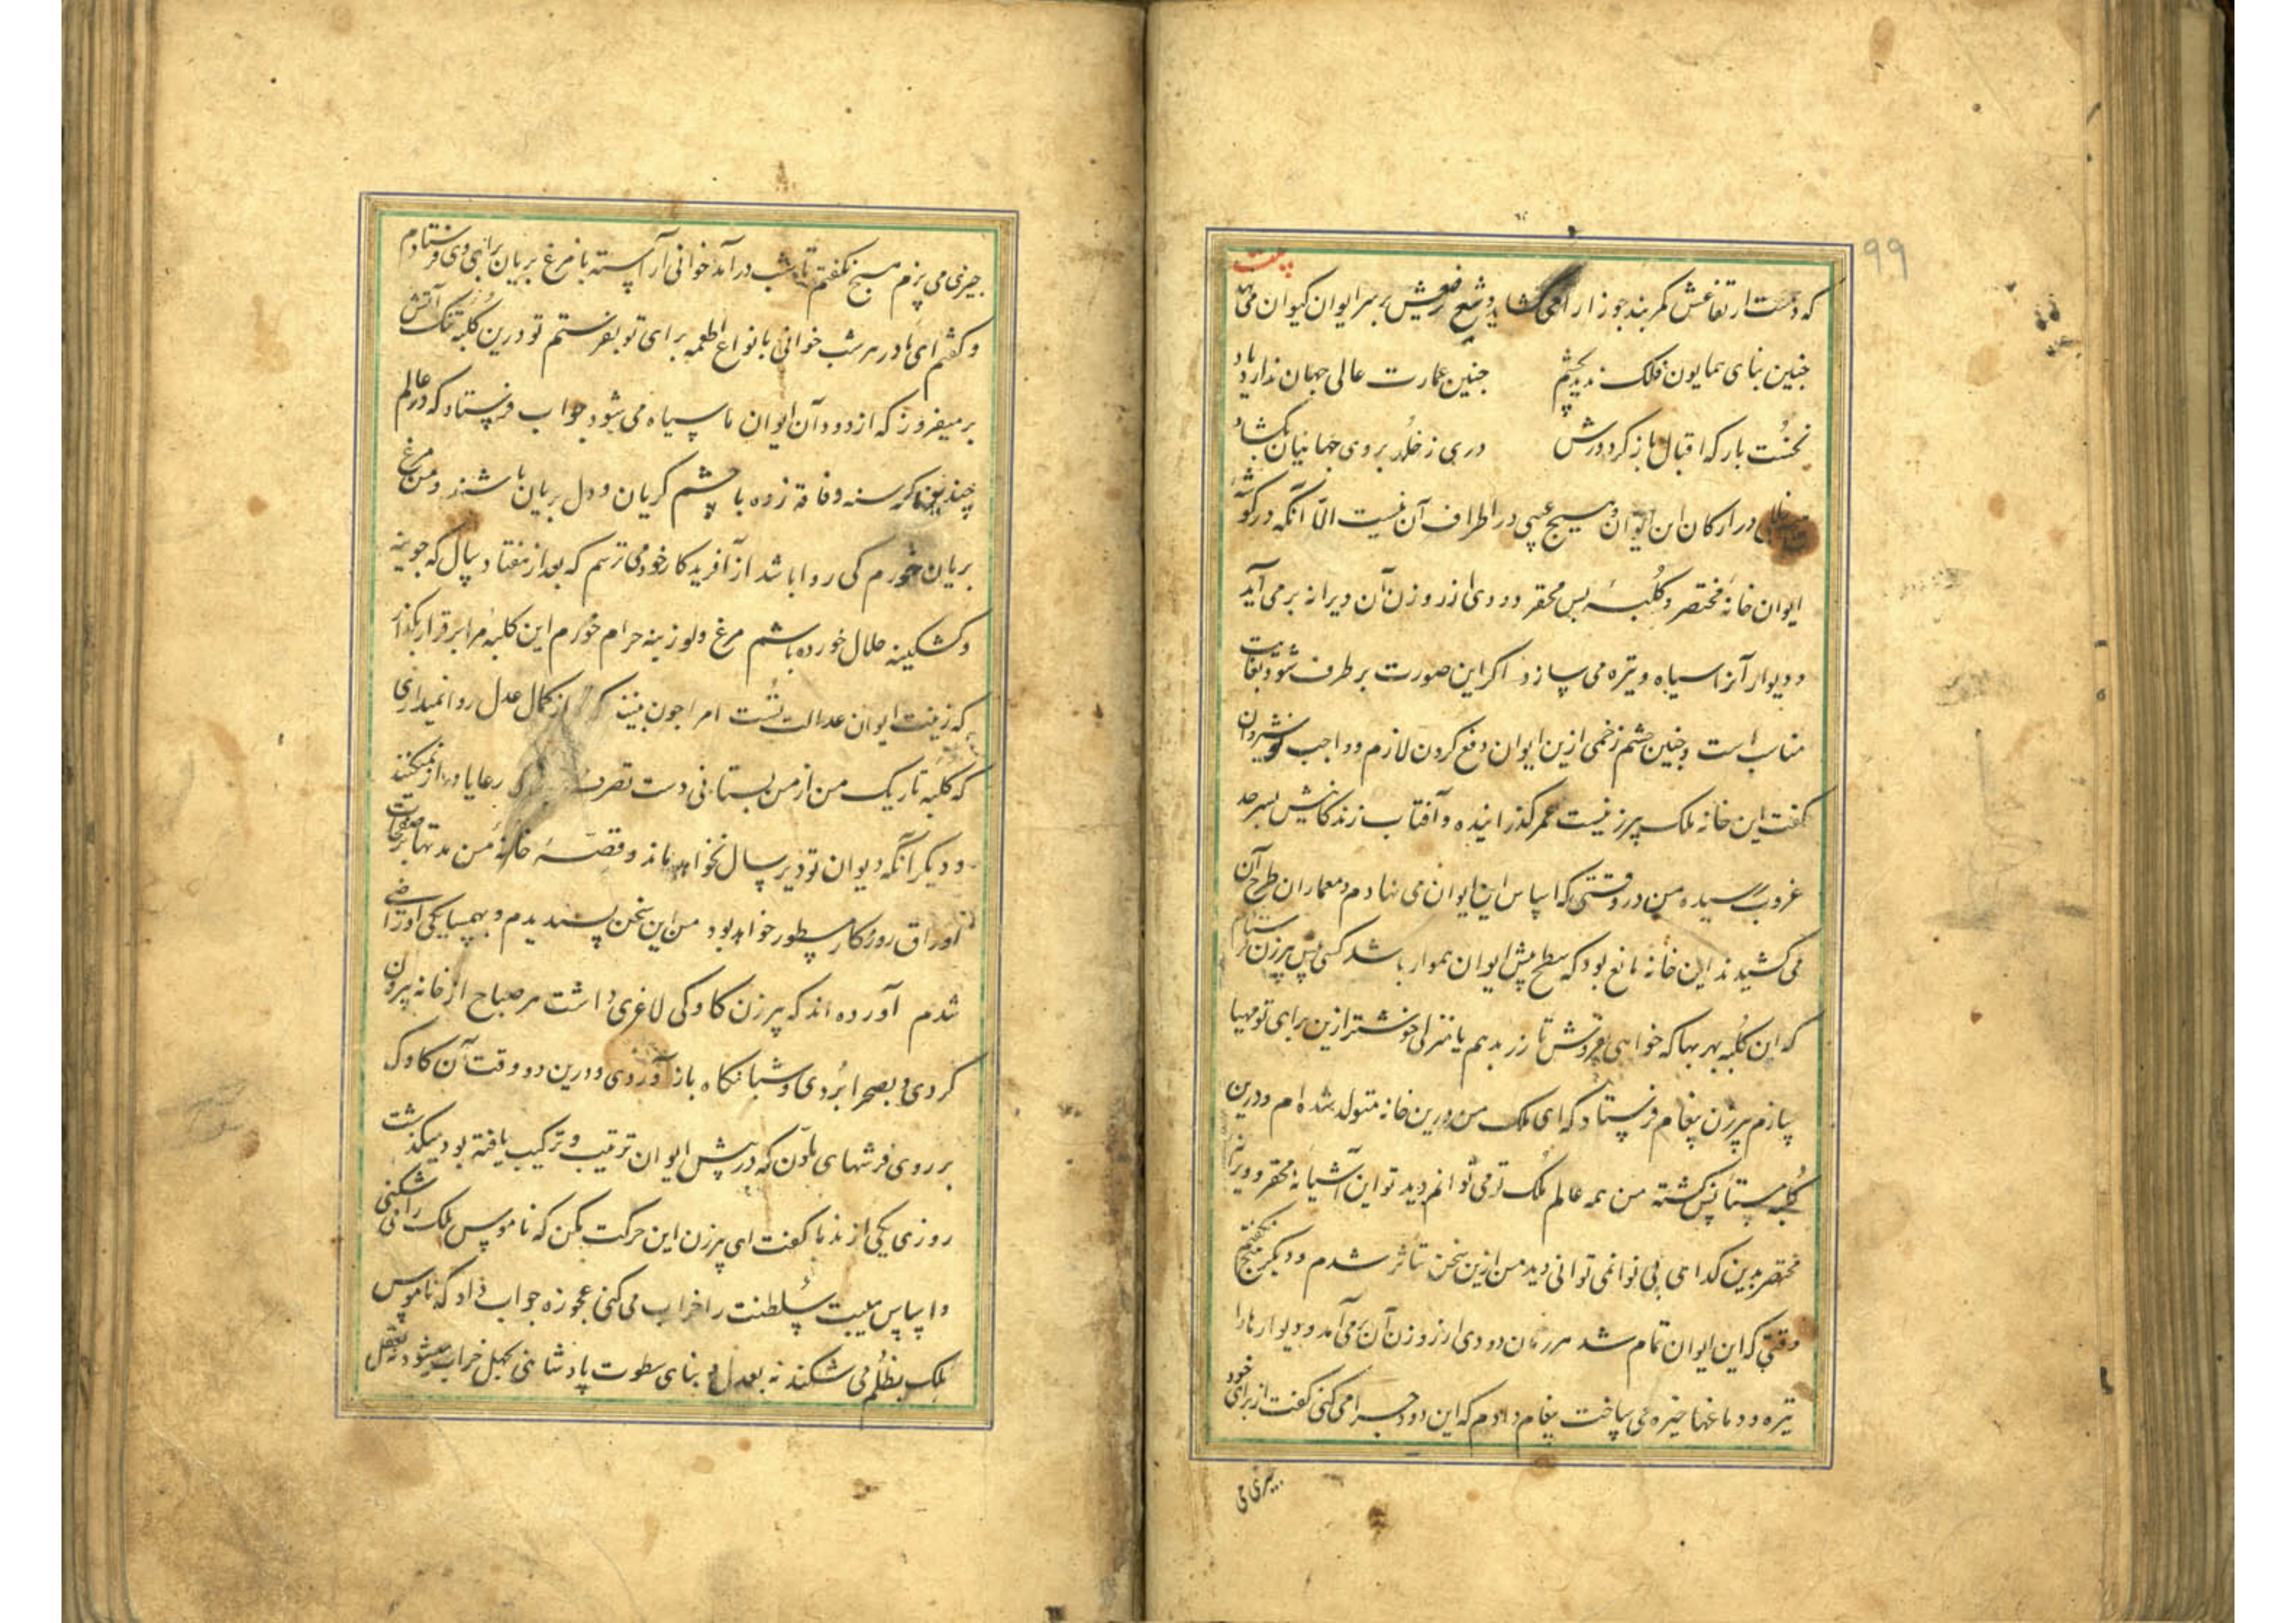 ۹۹
بیت
که دست ارتفاعش کمربند جوزا را می کشاید و شمع رفعش بر سر ایوان کیوان می نهد
چنین بنای همایون فلک ندید بچشم چنین عمارت عالی جهان ندارد یاد
نخست بار که اقبال باز کرد درش دری ز خلد بروی جهانیان بکشاد
خللی در ارکان این ایوان و هیچ عیبی در اطراف آن نیست الّا آنکه در کوشهٔ
ایوان خانهٔ مختصر و کلبهٔ بس محقر و دودی از روزن آن ویرانه بر می آید
و دیوار آنرا سیاه و تیره می سازد اکر این صورت بر طرف شود بغایت
مناسب است و چنین چشم زخمی ازین ایوان دفع کردن لازم و واجب نوشیروان
کفت این خانه ملک پیرزنیست عمر کذرانیده و آفتاب زندکانیش بسر حد
غروب رسیده من در وقتی که اساس این ایوان می نهادم و معماران طرح آن
می کشیدند این خانه مانع بود که سطح پیش ایوان هموار باشد کسی پیش پیرزن فرستادم
که این کلبه بهر بها که خواهی بفروش تا زر بدهم یا منزلی خوشتر ازین برای تو مهیا
سازم پیرزن پیغام فرستاد که ای ملک من درین خانه متولد شده ام و درین
کلبه مستأنس کشته من همه عالم ملک تو می توانم دید تو این آشیانه محقر و ویرانه
مختصر بدین کدای بی نوا نمی توانی دید من ازین سخن متأثر شدم و دیکر هیچ نکفتم
وقتی که این ایوان تمام شد هر زمان دودی از روزن آن برمی آمد و دیوارها را
تیره و دماغها خیره می ساخت پیغام دادم که این دود چرا می کنی کفت از برای خود
چیزی می
چیزی می پزم هیچ نکفتم تا شب درآمد خوانی آراسته با مرغ بریان برای وی فرستادم
و کفتم ای مادر هر شب خوانی بانواع اطعمه برای تو بفرستم تو درین کلبه تنک آتش
بر میفروز که از دود آن ایوان ما سیاه می شود جواب فرستاد که در عالم
چندین کرسنه و فاقه زده با چشم کریان و دل بریان باشند و من مرغ
بریان خورم کی روا باشد از آفریدکار خود می ترسم که بعد از هفتاد سال که جوینه
و کشکینه حلال خورده باشم مرغ و لوزینه حرام خورم این کلبهٔ مرا برقرار بکذار
که زینت ایوان عدالت تُست امرا چون بینند که از کمال عدل روا نمیداری
که کلبه تاریک من از من بستانی دست تصرف رعایا دراز نمیکنند
و دیکر آنکه ایوان تو دیر سال نخواهد ماند و قصّهٔ خانهٔ من مدتها بر صفحات
اوراق روزکار مسطور خواهد بود من این سخن پسندیدم و بهمسایکی او راضی
شدم آورده اند که پیرزن کاوکی لاغری داشت هر صباح از خانه بیرون
کردی و بصحرا بُردی و شبانکاه باز آوردی و درین دو وقت آن کاوک
بر روی فرشهای ملوّن که در پیش ایوان ترتیب و ترکیب یافته بود میکذشت
روزی یکی از ندما کفت ای پیرزن این حرکت مکن که ناموس ملک را می شکنی
و اساس هیبت سلطنت را خراب می کنی عجوزه جواب داد که ناموس
ملک بظلم می شکند نه بعدل و بنای سطوت پادشاهی بجهل خراب میشود نه بعقل